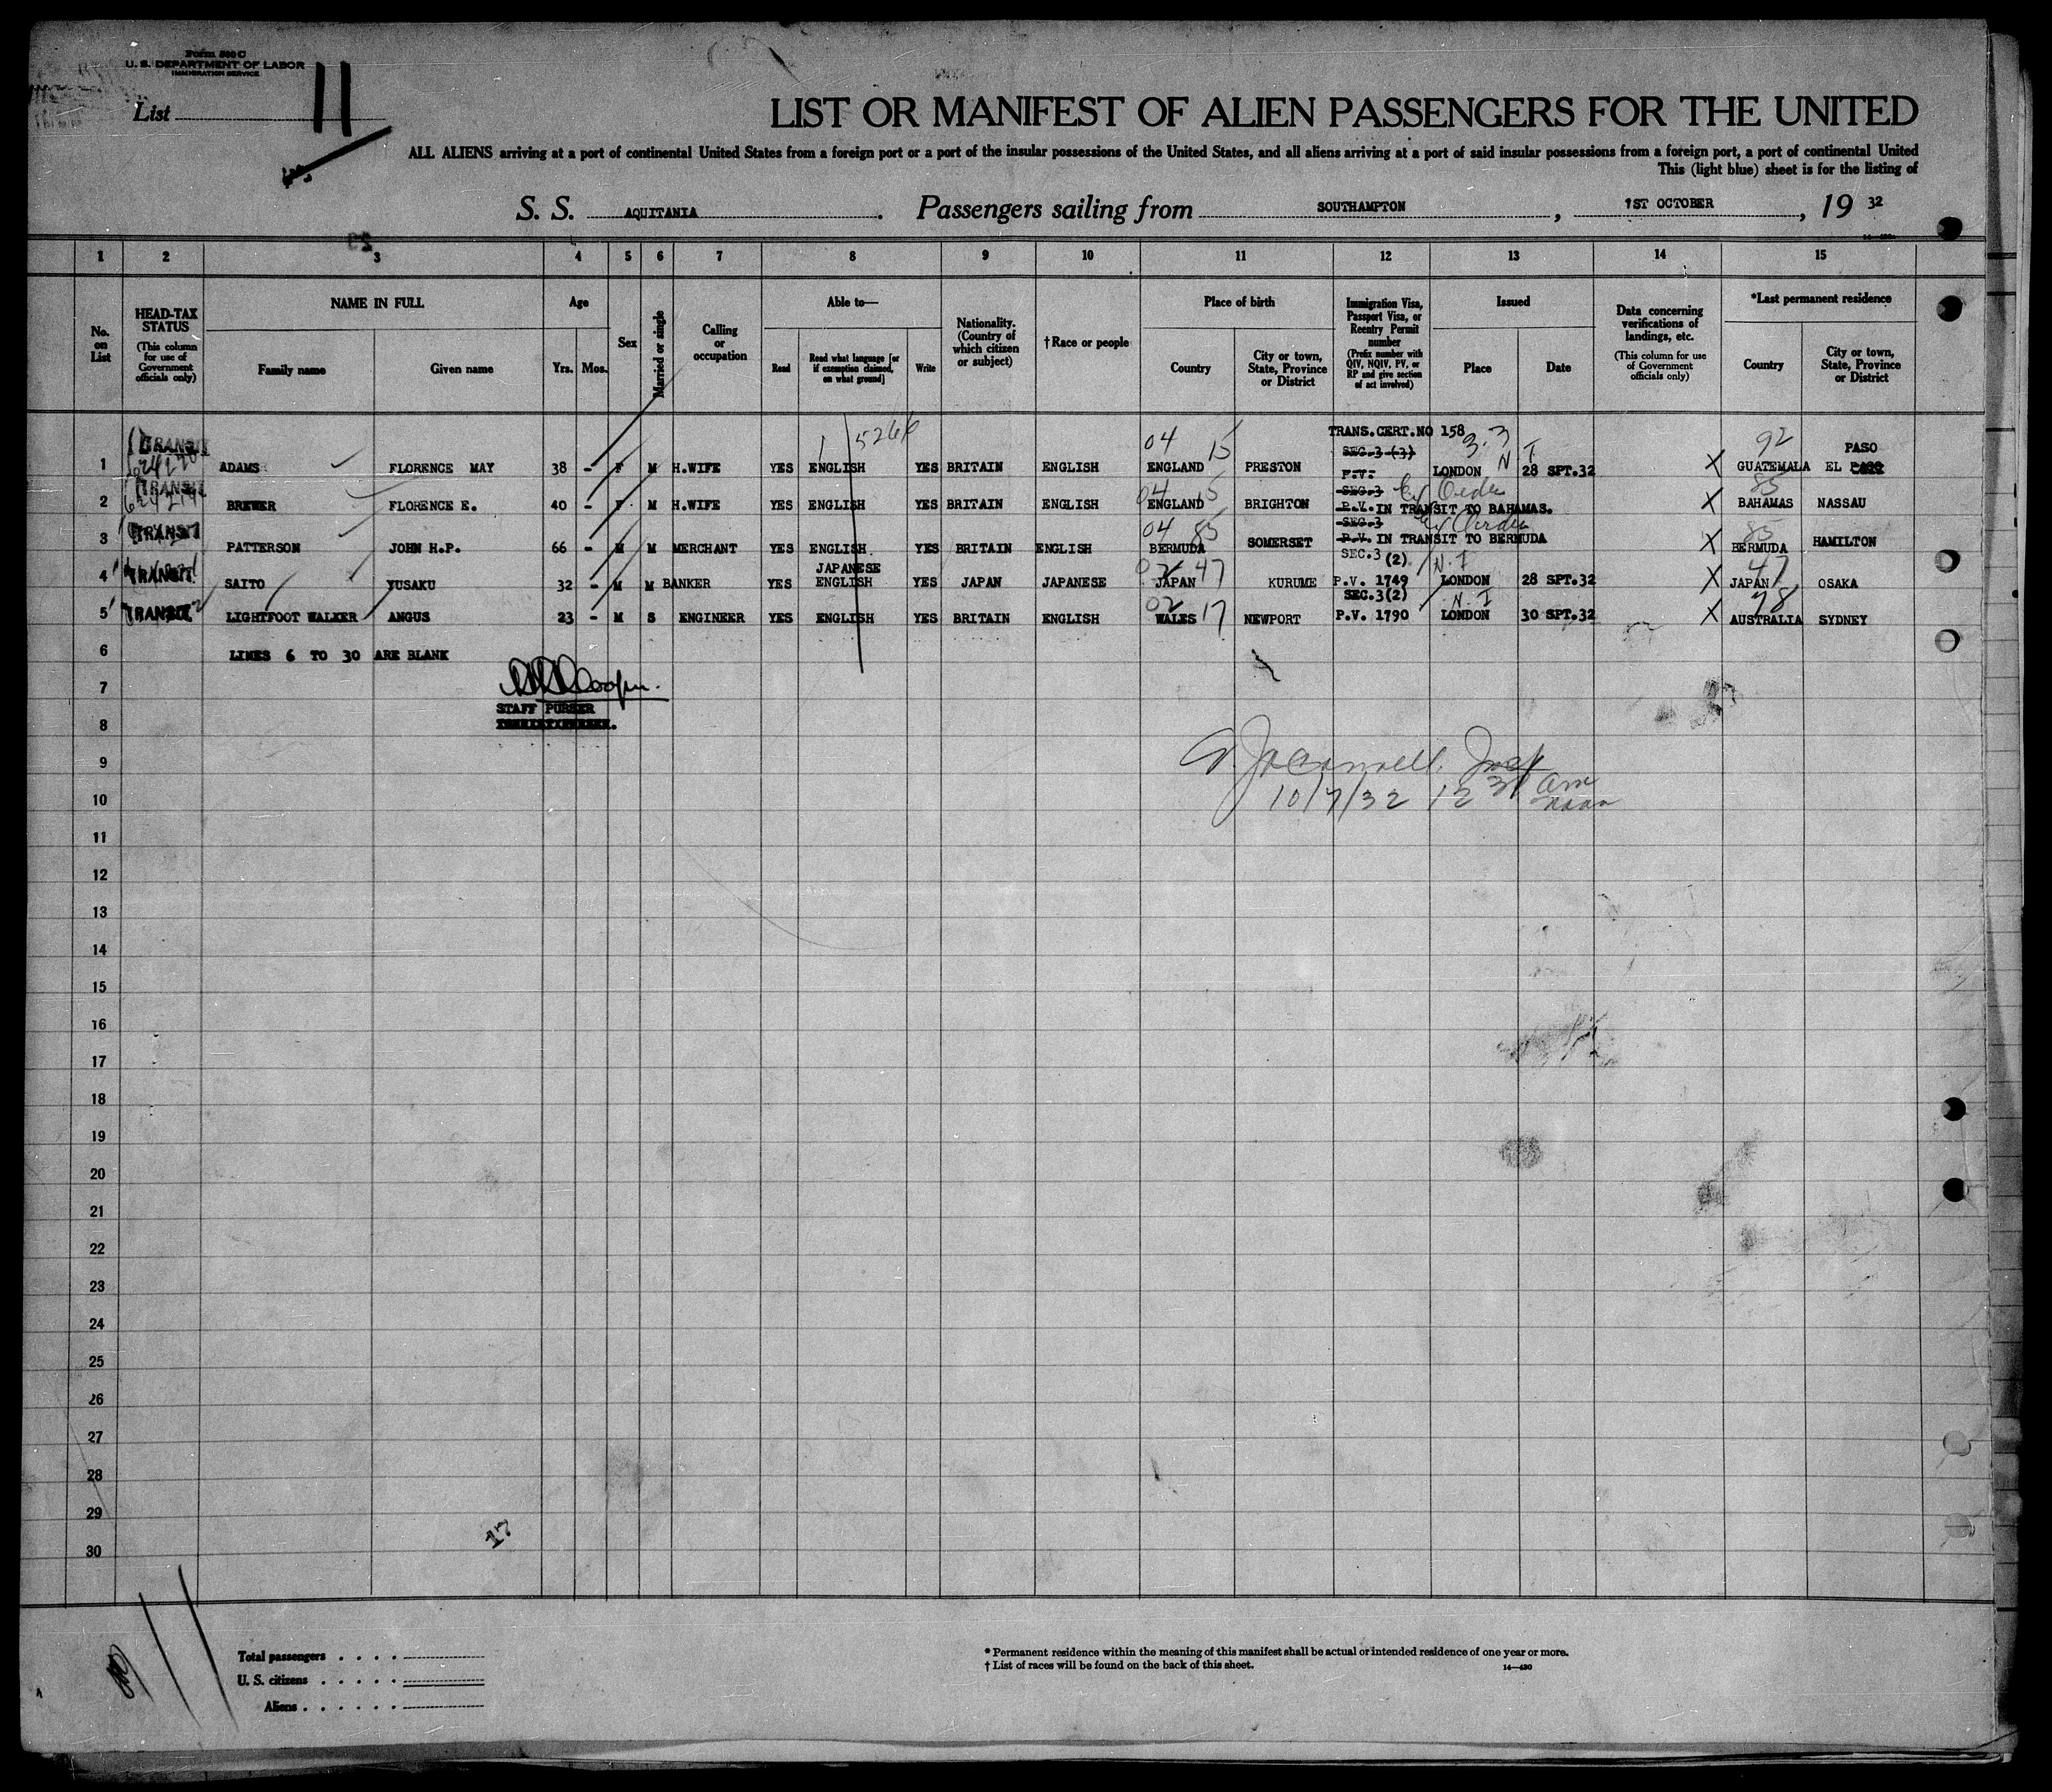 Form 500 C
U. S. DEPARTMENT OF LABOR
IMMIGRATION SERVICE
List 11
LIST OR MANIFEST OF ALIEN PASSENGERS FOR THE UNITED
ALL ALIENS arriving at a port of continental United States from a foreign port or a port of the insular possessions of the United States, and all aliens arriving at a port of said insular possessions from a foreign port, a port of continental United
This (light blue) sheet is for the listing of
S. S. AQUITANIA. Passengers sailing from SOUTHAMPTON, 1ST OCTOBER, 19 32
1 2 3 4 5 6 7 8 9 10 11 12 13 14 15
No. on List
HEAD-TAX STATUS
(This column for use of Government officials only)
NAME IN FULL
Family name
Given name
Age
Yrs. Mos.
Sex
Married or single
Calling or occupation
Able to—
Read
Read what language [or if exemption claimed, on what ground]
Write
Nationality. (Country of which citizen or subject)
† Race or people
Place of birth
Country
City or town, State, Province or District
Immigration Visa, Passport Visa, or Reentry Permit number
(Prefix number with QIV, NQIV, PV, or RP and give section of act involved)
Issued
Place
Date
Data concerning verifications of landings, etc.
(This column for use of Government officials only)
*Last permanent residence
Country
City or town, State, Province or District
5266 04 15 TRANS.CERT.NO 158 3.3 92
TRANSIT SEC.3 (3) PASO
1 ADAMS FLORENCE MAY 38 - F M H.WIFE YES ENGLISH YES BRITAIN ENGLISH ENGLAND PRESTON P.V. LONDON 28 SPT.32 X GUATEMALA EL
TRANSIT 04 15 SEC.3 Ex Order 85
2 BREWER FLORENCE E. 40 - F M H.WIFE YES ENGLISH YES BRITAIN ENGLISH ENGLAND BRIGHTON P.V. IN TRANSIT TO BAHAMAS. X BAHAMAS NASSAU
TRANSIT 04 85 SEC.3 Ex Order 85
3 PATTERSON JOHN H.P. 66 - M M MERCHANT YES ENGLISH YES BRITAIN ENGLISH BERMUDA SOMERSET P.V. IN TRANSIT TO BERMUDA X BERMUDA HAMILTON
TRANSIT JAPANESE 02 47 SEC.3 (2) N.I 47
4 SAITO YUSAKU 32 - M M BANKER YES ENGLISH YES JAPAN JAPANESE JAPAN KURUME P.V. 1749 LONDON 28 SPT.32 X JAPAN OSAKA
TRANSIT 02 17 SEC.3(2) N.I 78
5 LIGHTFOOT WALKER ANGUS 23 - M S ENGINEER YES ENGLISH YES BRITAIN ENGLISH WALES NEWPORT P.V. 1790 LONDON 30 SPT.32 X AUSTRALIA SYDNEY
6 LINES 6 TO 30 ARE BLANK
7
STAFF PURSER
8
9
10 10/7/32 12 30 am
11
12
13
14
15
16
17
18
19
20
21
22
23
24
25
26
27
28
29
30
17
11
Total passengers . . . .
U. S. citizens . . . . .
Aliens . . . . . .
* Permanent residence within the meaning of this manifest shall be actual or intended residence of one year or more.
† List of races will be found on the back of this sheet.
14—430